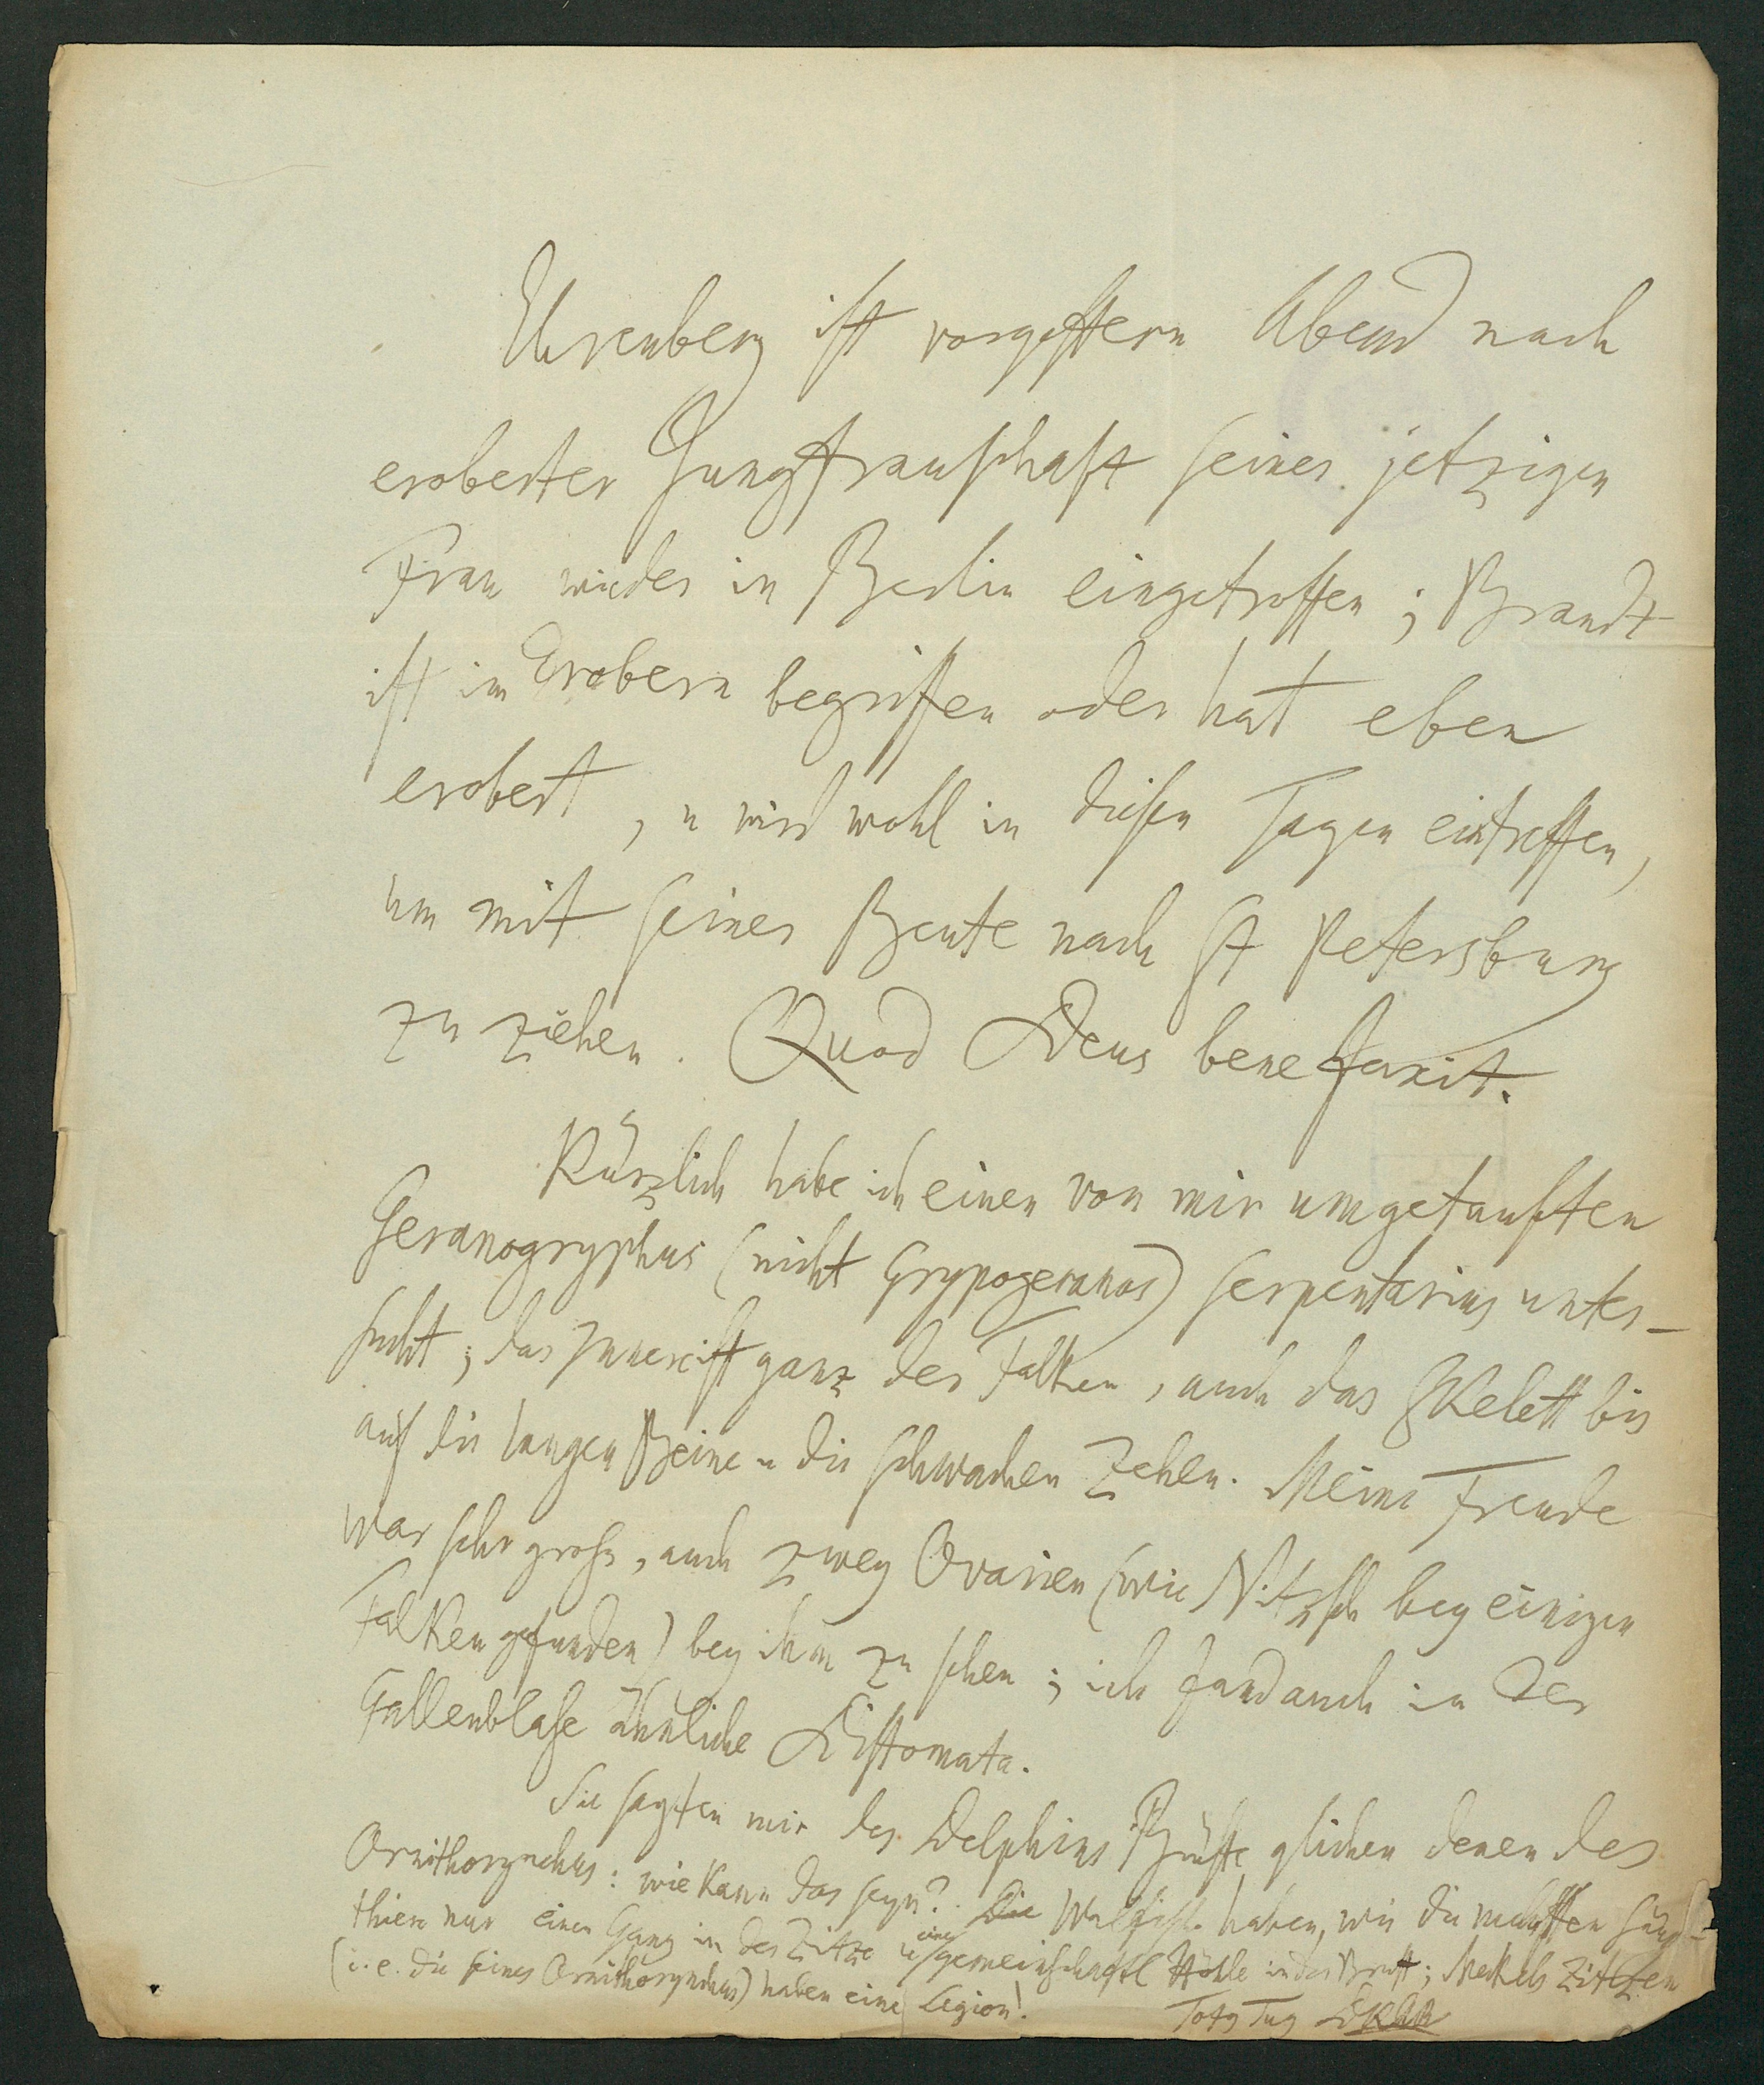 Ehrenberg ist vorgestern Abend nach
eroberter Jungfrauschaft seiner jetzigen
Frau wieder in Berlin eingetroffen; Brandt
ist im Erobern begriffen oder hat eben
erobert, u wird wohl in diesen Tagen eintreffen,
um mit seiner Beute nach St Petersburg
zu ziehen. Quod Deus bene faxit.
Kürzlich habe ich einen von mir umgetauften
Geranogryphus (nicht Gypogeranos) serpentarius unter-
sucht; das Innere ist ganz der Falken, auch das Skelett bis
auf die langen Beine u die schwachen Zehen. Meine Freude
war sehr groß, auch zwey Ovarien (wie Nitzsch bey einigen
Falken gefunden) bey ihm zu sehen; ich fand auch in der
Gallenblase ähnliche Distomata.
Sie sagten mir des Delphins Brüste glichen denen des
Ornithorynchus: wie kann das seyn? Die Walfische haben, wie die meisten Säug-
thiere nur einen Gang in der Zitze u eine gemeinschaftl Höhle in der Brust; Meckels Zitzen
(i. e. die seines Ornithorynchus) haben eine Legion!
Totg Tug